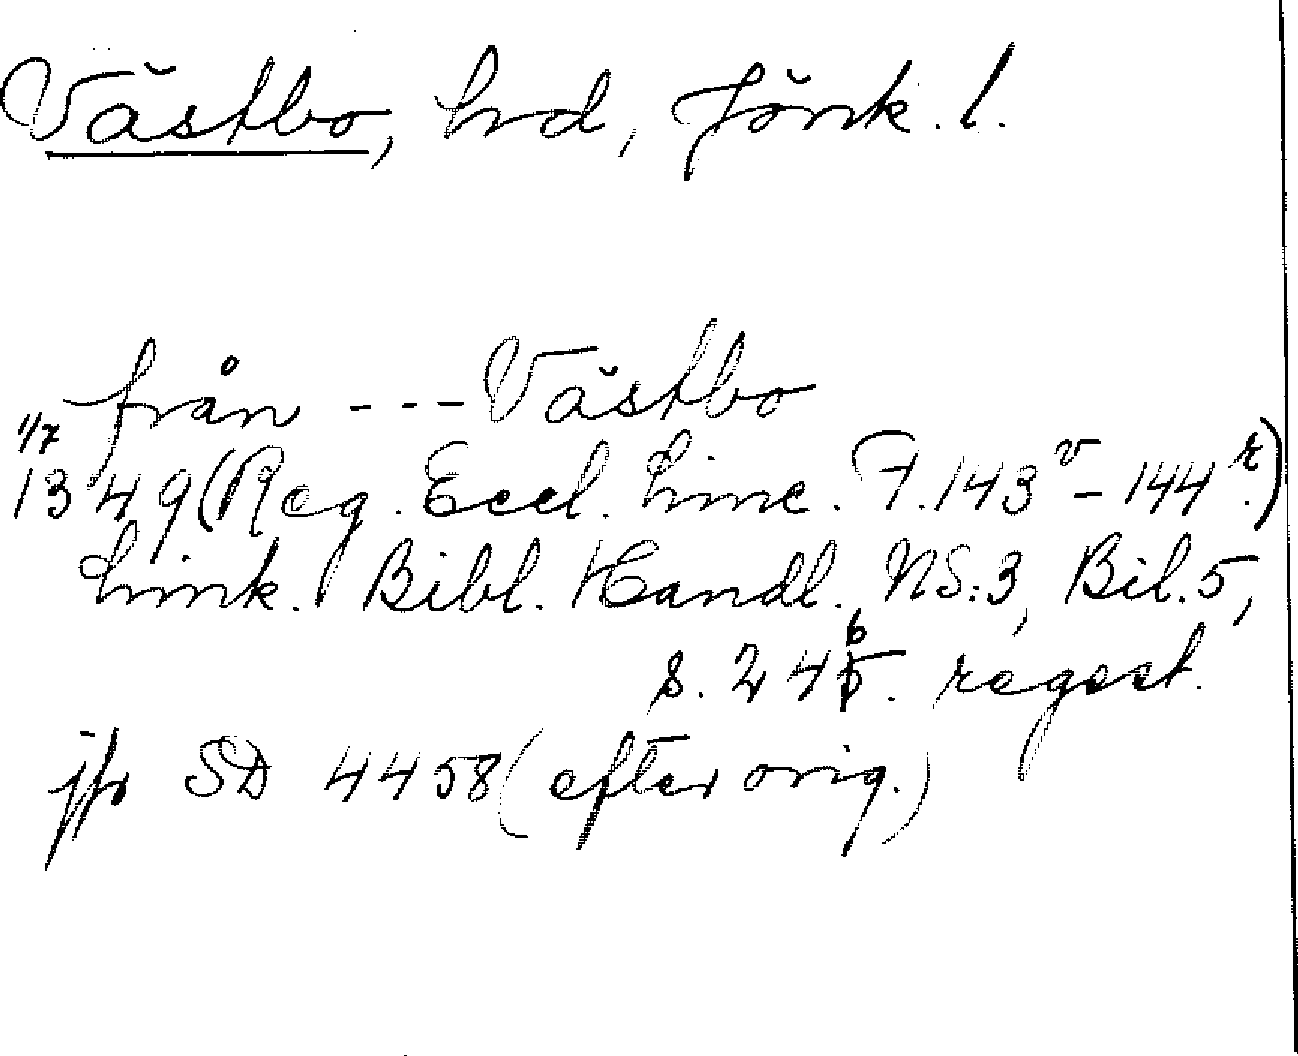 Västbo, hrd, Jönk. l.
från --- Västbo
1/7
1349 (Reg. Eccl. Linc. F. 143v - 144r.)
Link. Bibl. Handl. NS:3, Bil. 5,
s. 246. regest.
jfr SD 4458 (efter orig.)